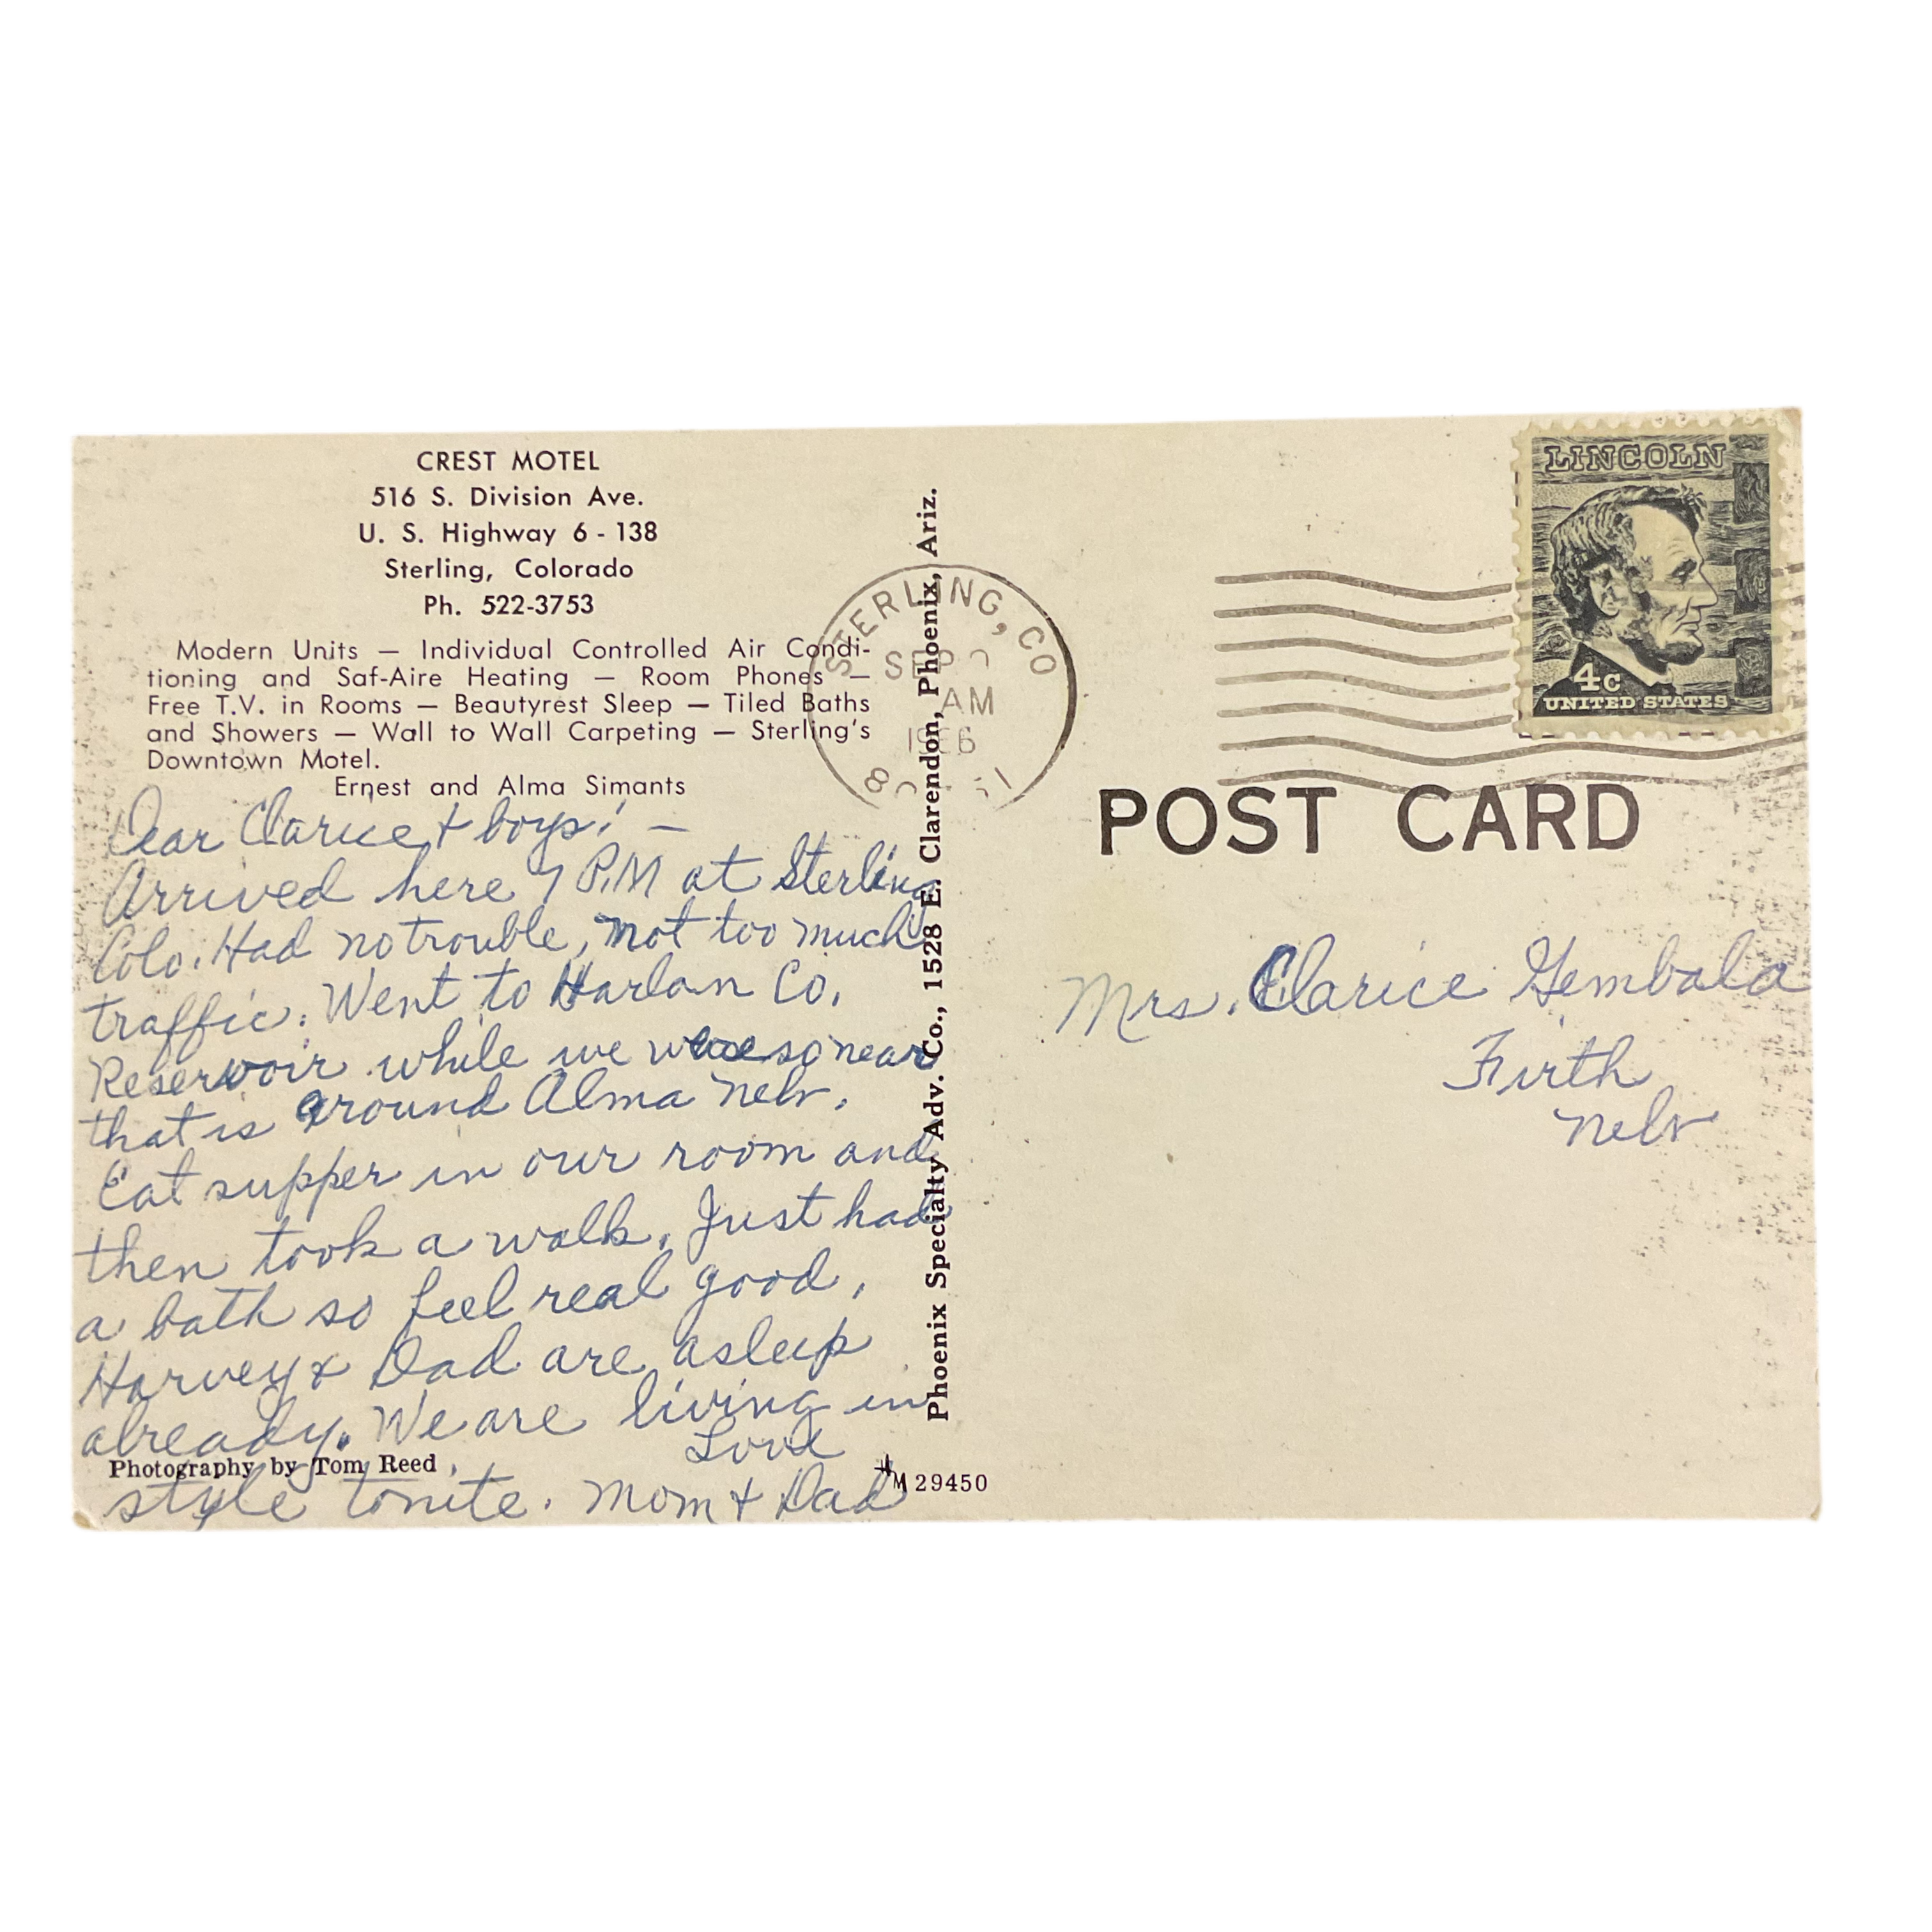 CREST MOTEL
516 S. Division Ave.
U. S. Highway 6 - 138
Sterling, Colorado
Ph. 522-3753
Modern Units — Individual Controlled Air Condi-
tioning and Saf-Aire Heating — Room Phones —
Free T.V. in Rooms — Beautyrest Sleep — Tiled Baths
and Showers — Wall to Wall Carpeting — Sterling's
Downtown Motel.
Ernest and Alma Simants
Dear Clarice & boys! —
Arrived here 7 P.M at Sterling
Colo. Had no trouble, not too much
traffic. Went to Harlan Co.
Reservoir while we were so near
that is around Alma Nebr.
Eat supper in our room and
then took a walk. Just had
a bath so feel real good.
Harvey & Dad are asleep
already. We are living in
style tonite.
Love
Mom & Dad
Photography by Tom Reed
M 29450
Phoenix Specialty Adv. Co., 1528 E. Clarendon, Phoenix, Ariz.
STERLING, CO
SEP
AM
LINCOLN
4c
UNITED STATES
POST CARD
Mrs. Clarice Gembala
Firth
Nebr